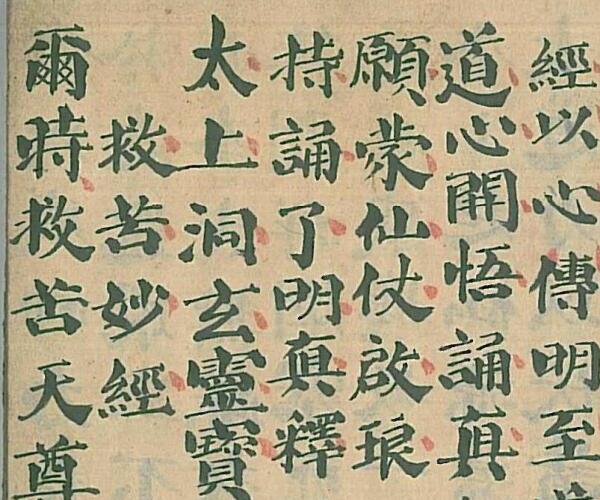 經以心傳明至
道心開悟誦真
願蒙仙仗啟琅
持誦了明真釋
太上洞玄靈寶
救苦妙經
爾時救苦天尊